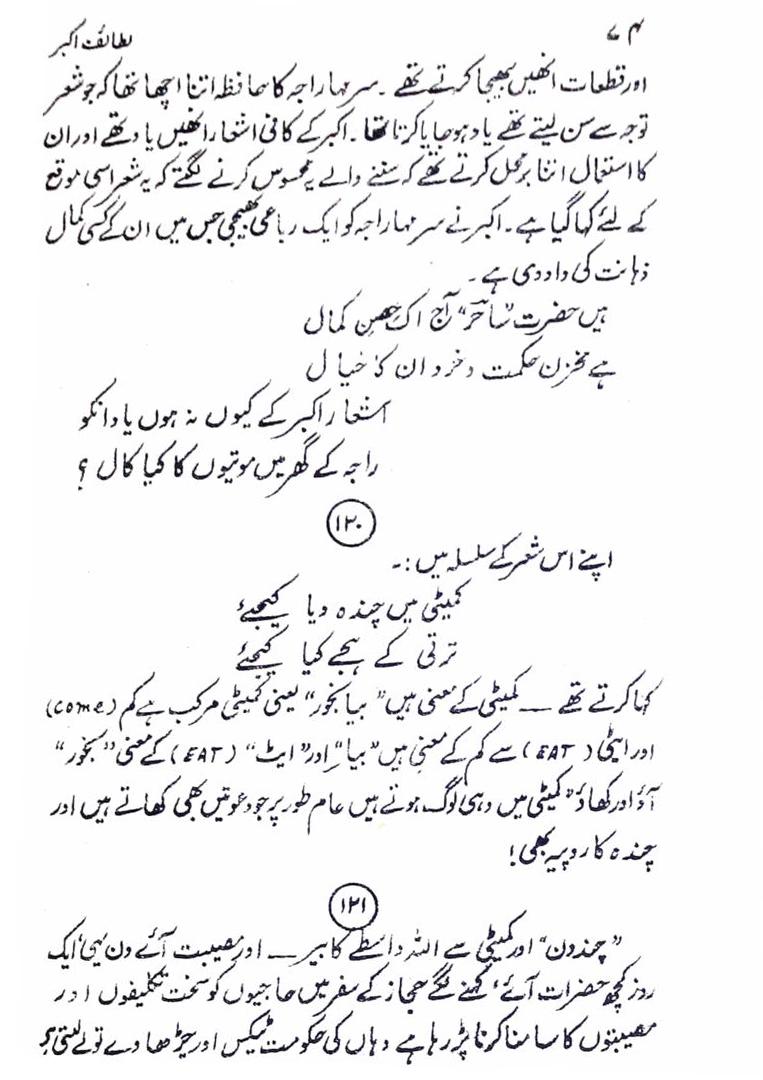 ۷۴
لطائف اکبر
اور قطعات انھیں بھیجا کرتے تھے ۔ سر مہاراجہ کا حافظہ اتنا اچھا تھا کہ جو شعر
توجہ سے سن لیتے تھے یاد ہوجایا کرتا تھا ۔ اکبر کے کافی اشعار انھیں یاد تھے اور ان
کا استعمال اتنا برمحل کرتے تھے کہ سننے والے یہ محسوس کرنے لگتے کہ یہ شعر اسی موقع
کے لئے کہا گیا ہے ۔ اکبر نے سر مہاراجہ کو ایک رباعی بھیجی جس میں ان کے کسی کمال
ذہانت کی داد دی ہے ۔
ہیں حضرت "ساحر" آج اک حصن کمال
ہے مخزن حکمت و خرد ان کا خیال
اشعار اکبر کے کیوں نہ ہوں یاد انکو
راجہ کے گھر میں موتیوں کا کیا کال ؟
۱۲۰
اپنے اس شعر کے سلسلہ میں :۔
کمیٹی میں چندہ دیا کیجئے
ترقی کے ہجے کیا کیجئے
کہا کرتے تھے ــــ کمیٹی کے معنی ہیں "بیا بخور" یعنی کمیٹی مرکب ہے کم (come)
اور ایٹی (EAT) سے کم کے معنی ہیں "بیا" اور "ایٹ" (EAT) کے معنی "بخور"
آؤ اور کھاؤ" کمیٹی میں وہی لوگ ہوتے ہیں عام طور پر جو دعوتیں بھی کھاتے ہیں اور
چندہ کا روپیہ بھی !
۱۲۱
"چندوں" اور کمیٹی سے اللہ واسطے کا بیر ــــ اور مصیبت آئے دن یہی، ایک
روز کچھ حضرات آئے، کہنے لگے حجاز کے سفر میں حاجیوں کو سخت تکلیفوں اور
مصیبتوں کا سامنا کرنا پڑ رہا ہے وہاں کی حکومت ٹیکس اور چڑھاوے تو لے لیتی ہے